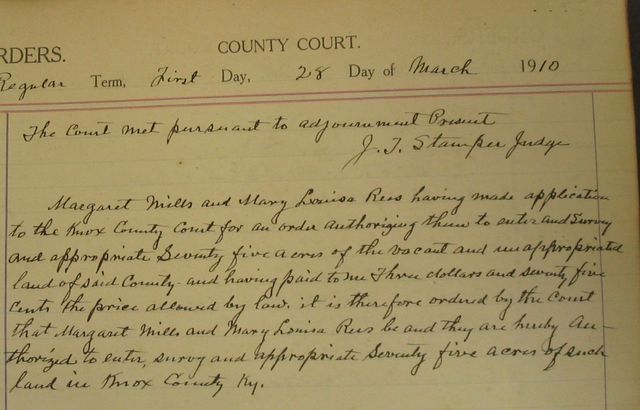 RDERS.
COUNTY COURT.
Regular Term, First Day, 28 Day of March 1910
The Court met pursuant to adjournment Present
J. T. Stamper Judge
Margaret Mills and Mary Louisa Rees having made application
to the Knox County Court for an order authorizing them to enter and Survey
and appropriate Seventy five acres of the vacant and unappropriated
land of said County. and having paid to me Three dollars and seventy five
cents the price allowed by law. it is therefore ordered by the Court
that Margaret Mills and Mary Louisa Rees be and they are hereby Au-
thorized to enter, survey and appropriate Seventy five acres of such
land in Knox County Ky.